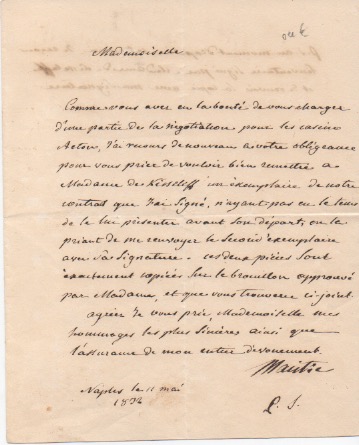 Mademoiselle
Comme vous avez eu la bonté de vous charger
d'une partie de la négotiation pour les casins
Acton, J'ai recours de nouveau a votre obligeance
pour vous prier de vouloir bien remettre a
Madame de un exemplaire de notre
contrat que J'ai Signé, n'ayant pas eu le tems
de le lui présenter avant Son départ; en la
priant de me renvoyer le Second exemplaire
avec Sa Signature. ces deux pièces Sont
exactement copiées Sur le brouillon approuvé
par Madame, et que vous trouverez ci-joint.
agréez Je vous prie, Mademoiselle mes
hommages les plus Sincères ainsi que
l'assurance de mon entier dévouement.
Naples le 11 mai